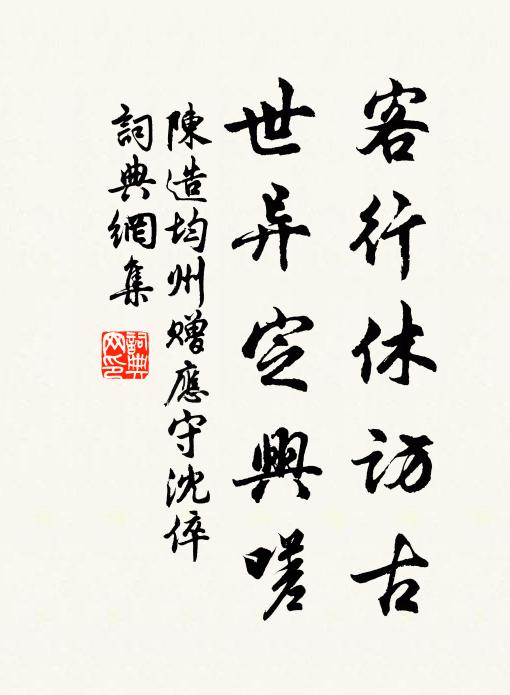 客行休访古
世异定興嗟
陳造均州赠應守沈倅
詞典網集
詞典网印